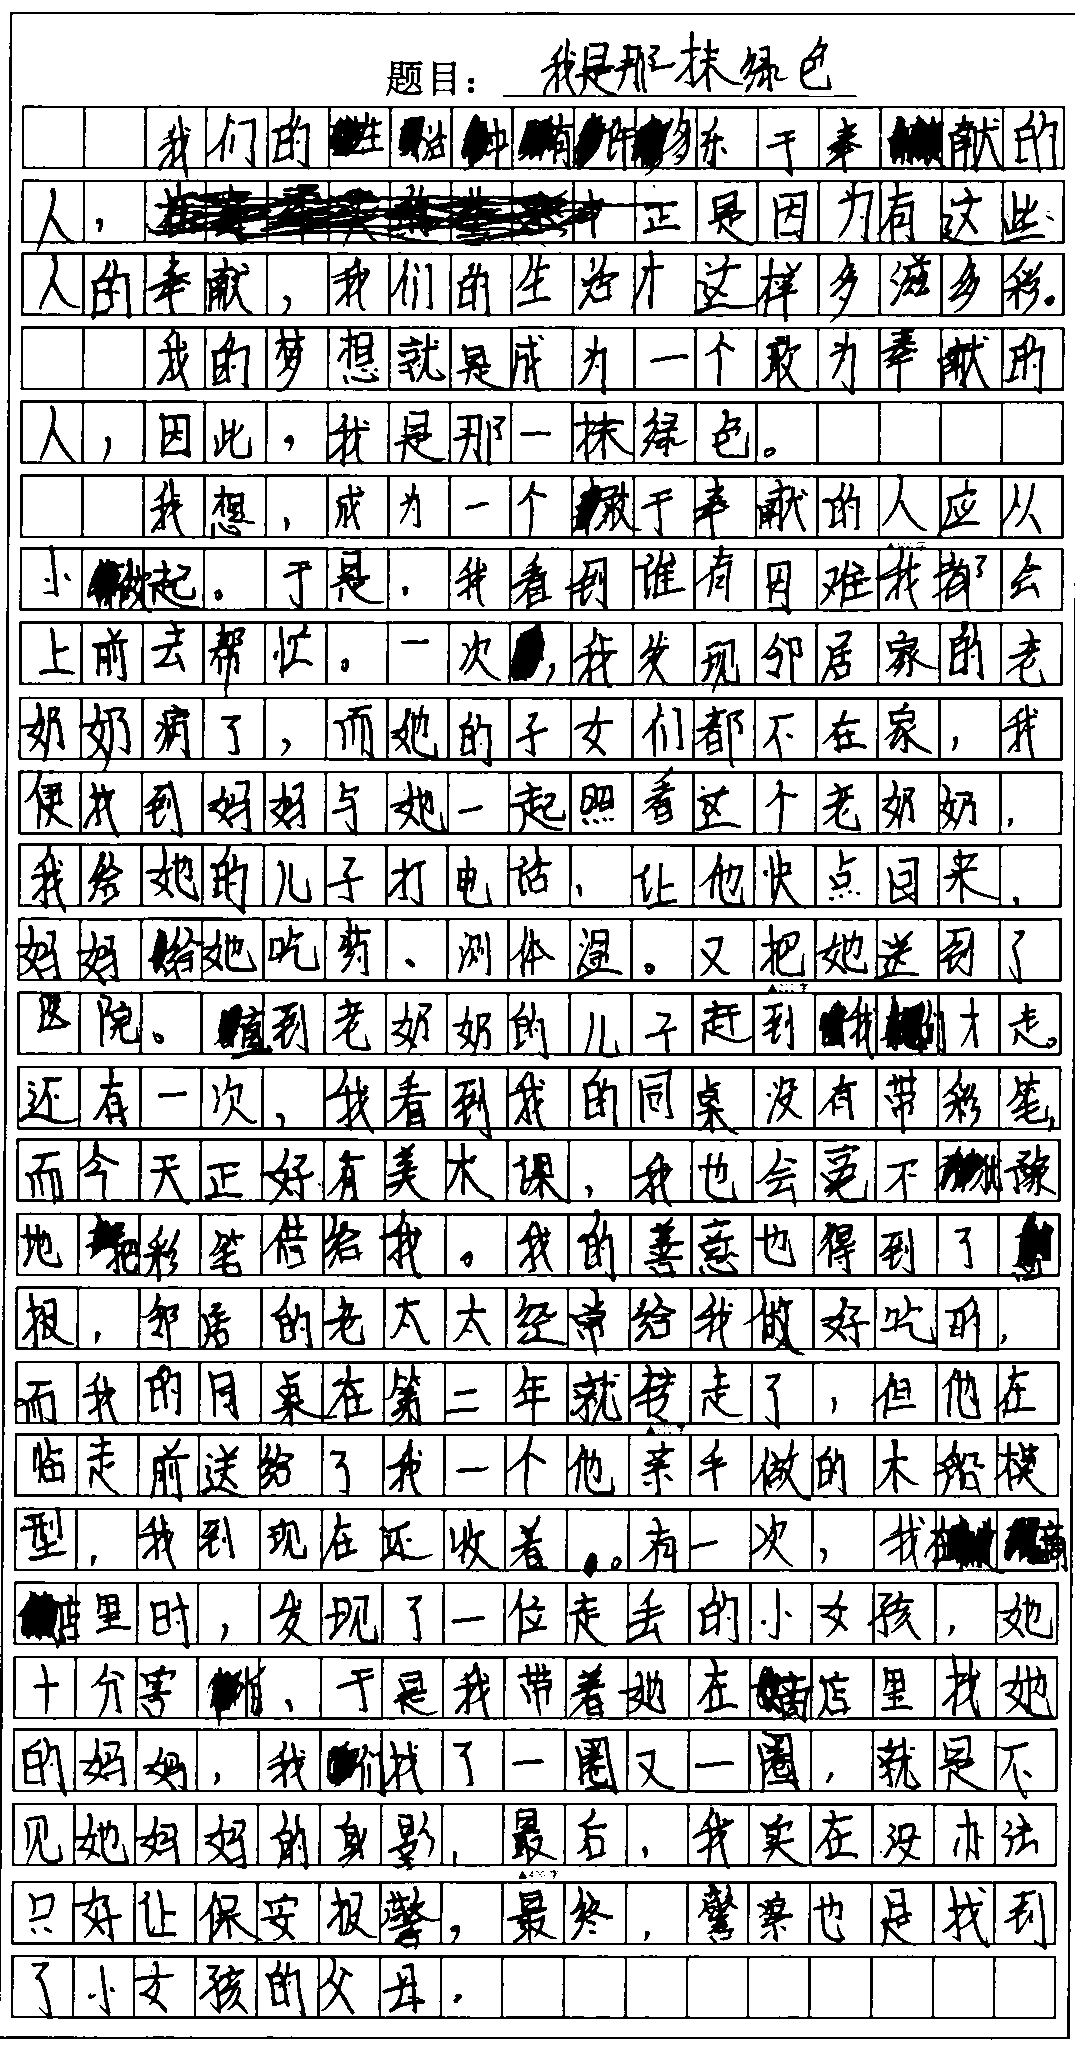 题目：我是那抹绿色
我们的生活中有许多乐于奉献的
人，正是因为有这些
人的奉献，我们的生活才这样多滋多彩。
我的梦想就是成为一个敢为奉献的
人，因此，我是那一抹绿色。
我想，成为一个敢于奉献的人应从
小做起。于是，我看到谁有困难我都会
上前去帮忙。一次，我发现邻居家的老
奶奶病了，而她的子女们都不在家，我
便找到妈妈与她一起照看这个老奶奶，
我给她的儿子打电话，让他快点回来，
妈妈给她吃药、测体温。又把她送到了
医院。直到老奶奶的儿子赶到我们才走。
还有一次，我看到我的同桌没有带彩笔，
而今天正好有美术课，我也会毫不犹豫
地把彩笔借给我。我的善意也得到了
报，邻居的老太太经常给我做好吃的，
而我的同桌在第二年就转走了，但他在
临走前送给了我一个他亲手做的木船模
型，我到现在还收着。有一次，我在商
店里时，发现了一位走丢的小女孩，她
十分害怕、于是我带着她在商店里找她
的妈妈，我们找了一圈又一圈，就是不
见她妈妈的身影，最后，我实在没办法
只好让保安报警，最终，警察也是找到
了小女孩的父母。